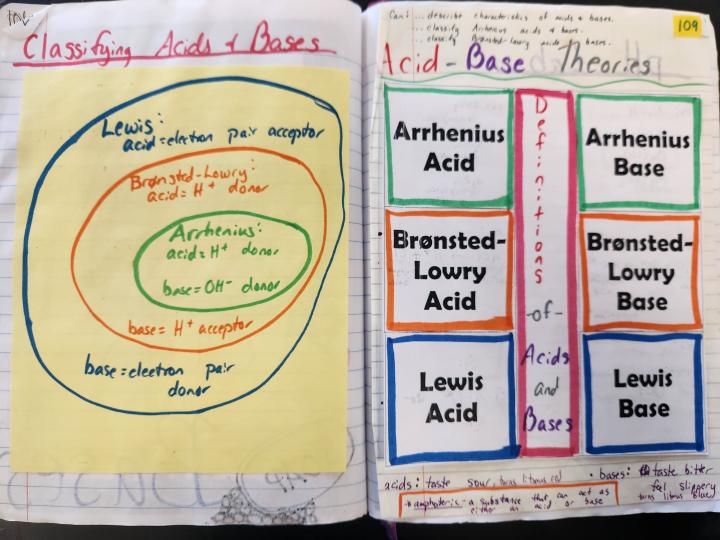 Classifying Acids & Bases
Lewis:
acid=electron pair acceptor
Brønsted-Lowry:
acid= H+ donor
Arrhenius:
acid=H+ donor
base=OH- donor
base= H+ acceptor
base=electron pair
donor
109
Can I ...describe characteristics of acids & bases.
...classify Arrhenius acids & bases.
...classify Brønsted-Lowry acids & bases.
Acid-Base Theories
Arrhenius
Acid
Brønsted-
Lowry
Acid
Lewis
Acid
Definitions
-of-
Acids
and
Bases
Arrhenius
Base
Brønsted-
Lowry
Base
Lewis
Base
acids: taste sour, turns litmus red
• bases: taste bitter
feel slippery
turns litmus blue
amphoteric - a substance that can act as
either an acid or base